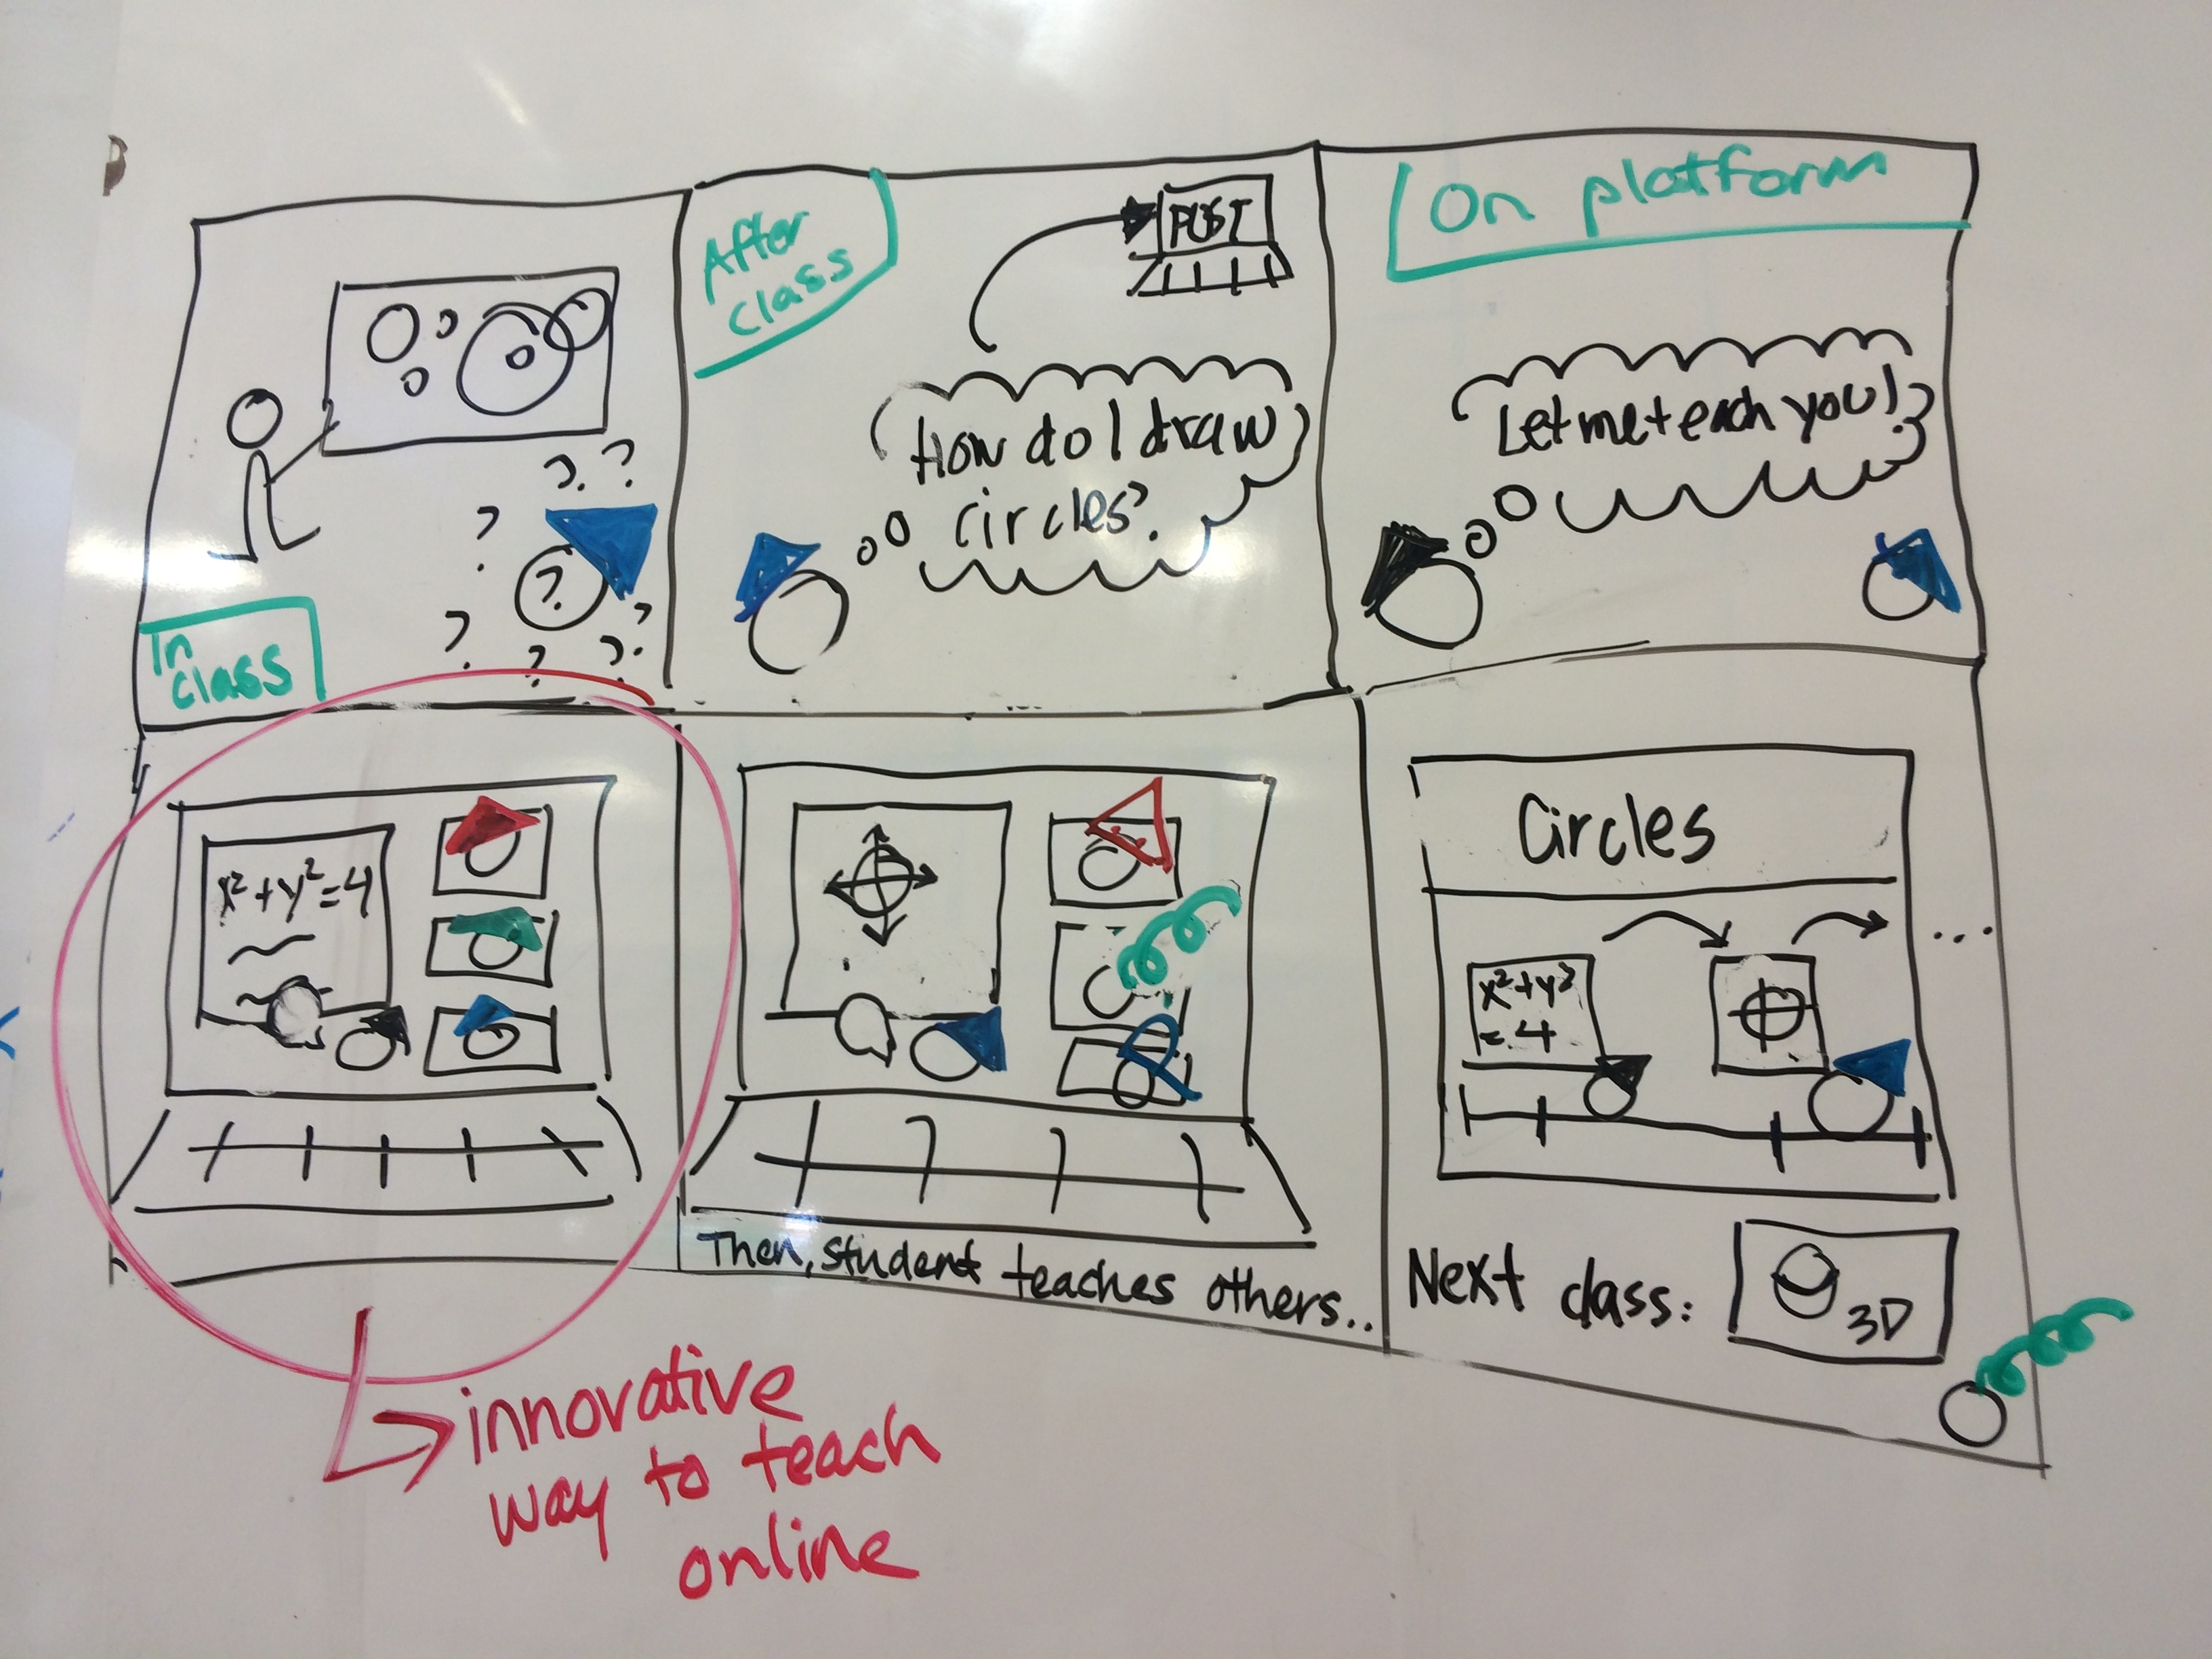 In
class
? ?
?
?
?
?
?
?
After
class
POST
How do I draw
circles?
On platform
Let me teach you!
x²+y²=4
Then, student teaches others..
Circles
x²+y²
=4
...
Next class:
3D
innovative
way to teach
online